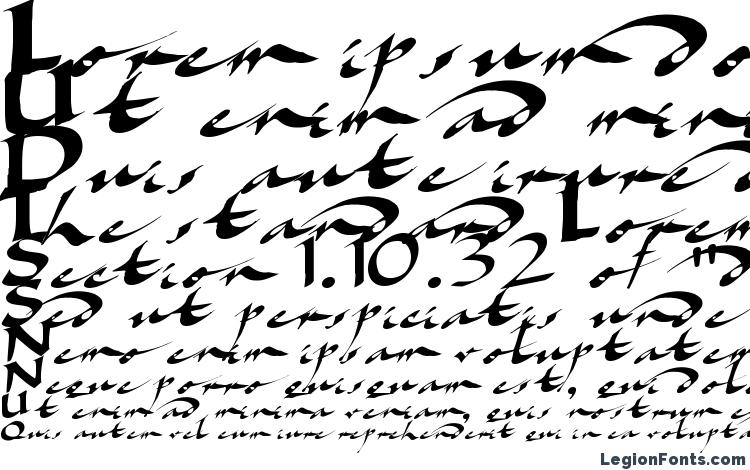 Lorem ipsum do
Ut enim ad min
Duis aute irure d
The standard Lorem
Section 1.10.32 of "d
Sed ut perspiciatis unde
Nemo enim ipsam voluptatem
Neque porro quisquam est, qui dol
Ut enim ad minima veniam, quis nostrum e
Quis autem vel eum iure reprehenderit qui in ea volupta
LegionFonts.com